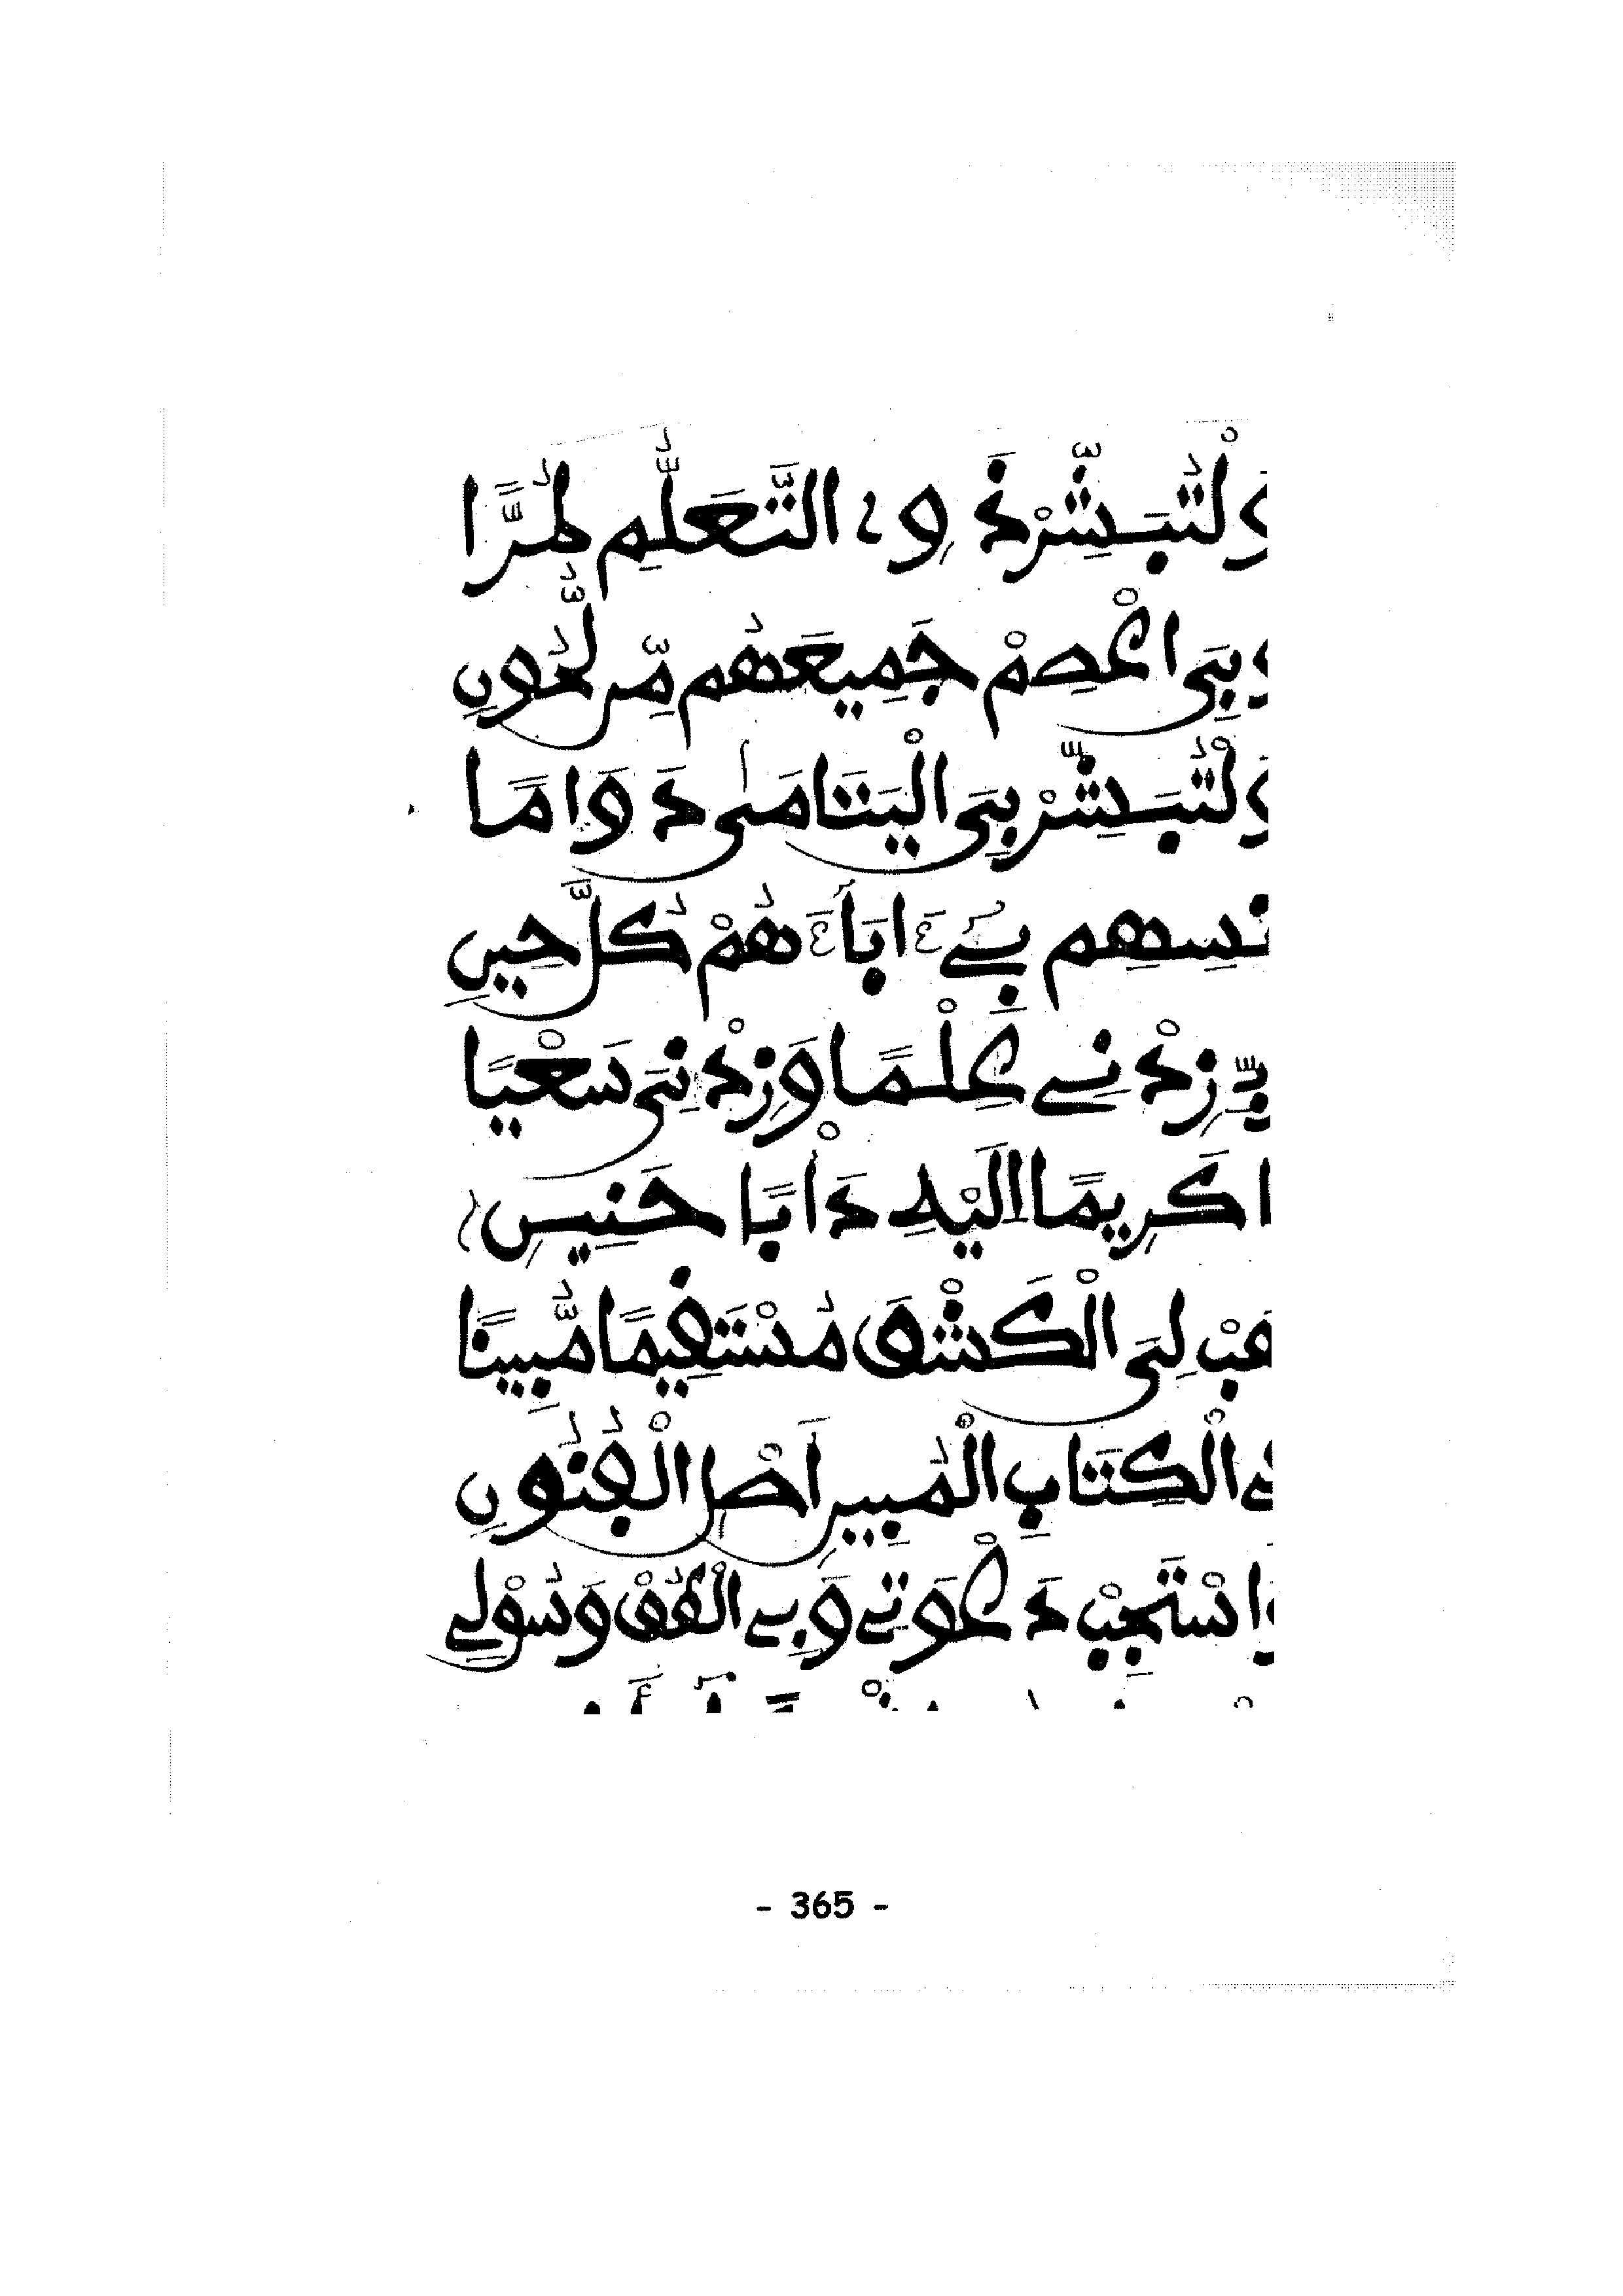 وَلْتُبَشِّرْ ذَوِ التَّعَلُّمِ طُرًّا
وَبِيَ اعْصِمْ جَمِيعَهُم مِّن لُّحُونِ
وَلْتُبَشِّرْ بِيَ الْيَتَامَىٰ دَوَامًا
نسِهِم بِيءَابَآءَهُمْ كُلَّ حِينِ
رَبِّ زِدْنِي عِلْمًا وَزِدْنِيَ سَعْيًا
كَرِيمًا إِلَيْهِ دَأْبًا حَنِينِ
هَبْ لِيَ الْكَشْفَ مُسْتَقِيمًا مُّبِينًا
الْكِتَابِ الْمُبِينِ أَصْلِ الْفُنُونِ
وَاسْتَجِبْ دَعْوَتِي وَبِي الْقُفْ وَسُولِي
- 365 -